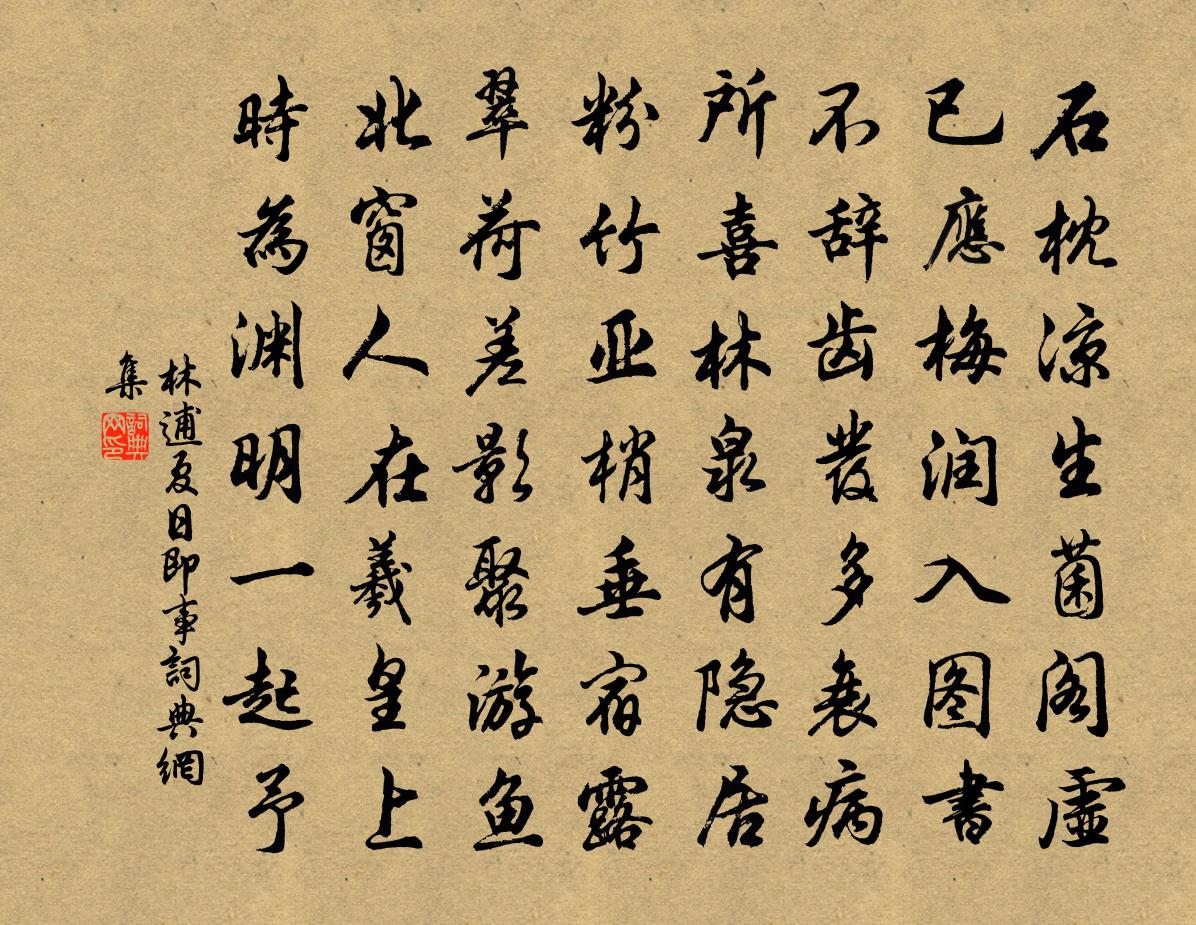 石枕涼生菌阁虛
已應梅润入图書
不辞齿發多衰病
所喜林泉有隐居
粉竹亚梢垂宿露
翠荷差影聚游鱼
北窗人在羲皇上
時為渊明一起予
林逋夏日即事詞典網
集
詞典
网印